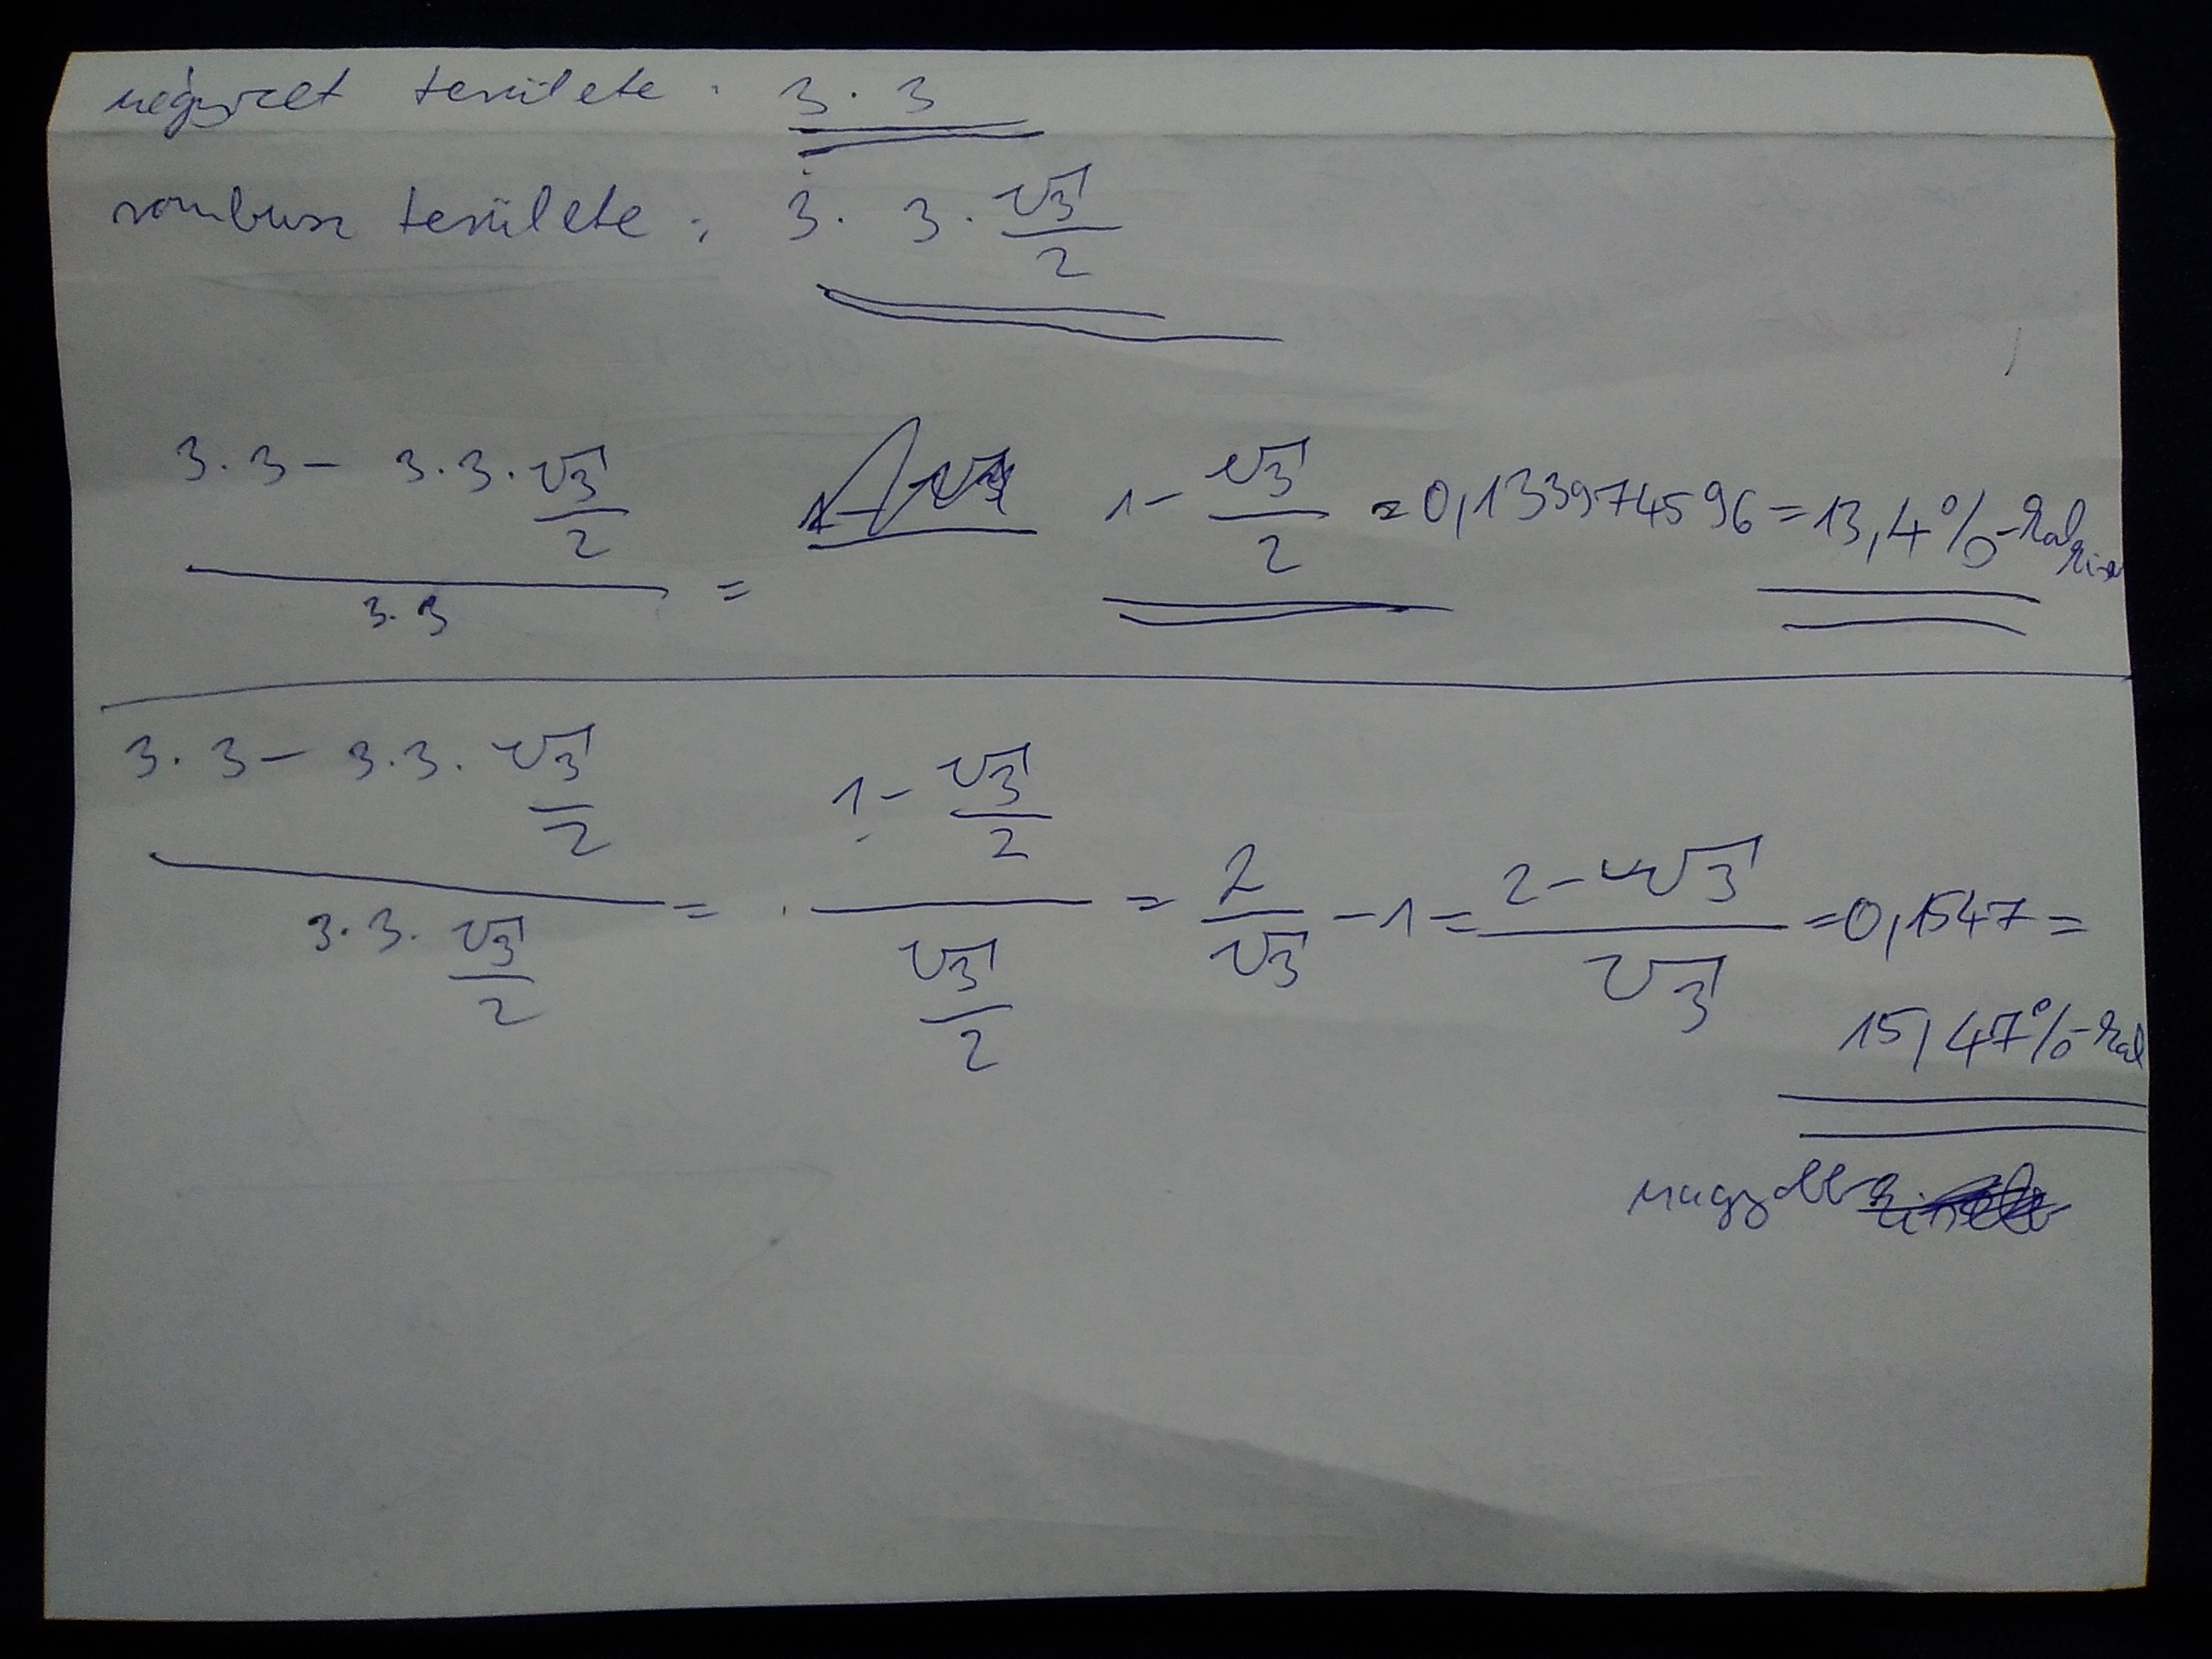 négyzet területe : 3 · 3
rombusz területe : 3 · 3 · √3/2
(3·3 − 3·3·√3/2)/(3·3) = 1 − √3/2 = 0,133974596 = 13,4%-kal
(3·3 − 3·3·√3/2)/(3·3·√3/2) = (1 − √3/2)/(√3/2) = 2/√3 − 1 = (2 − √3)/√3 = 0,1547 =
15,47%-kal
nagyobb